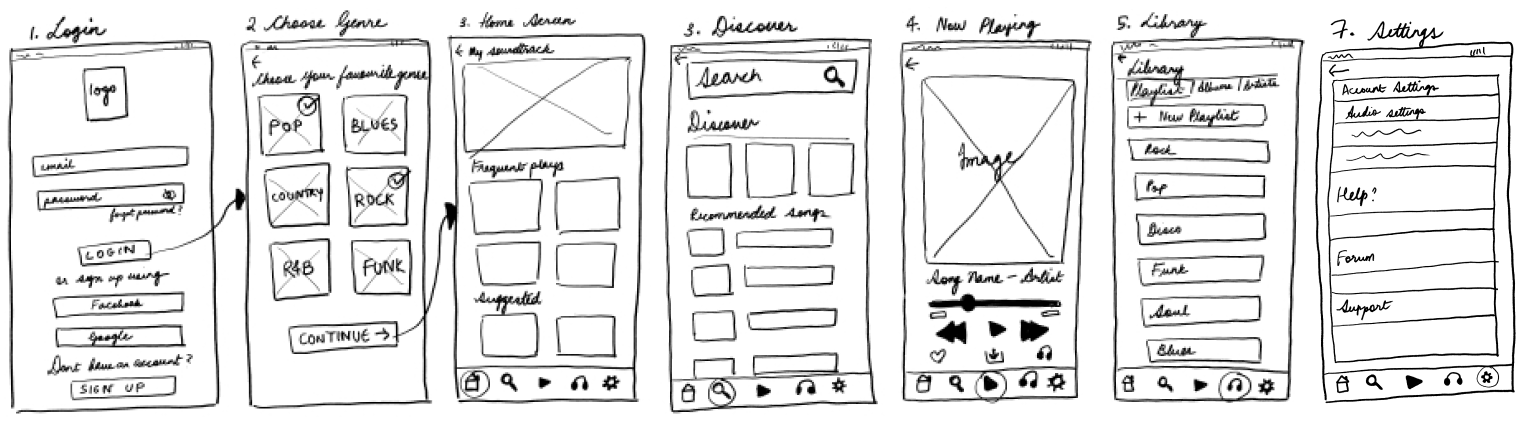 1. Login
logo
email
password
forgot password?
LOGIN
or sign up using
Facebook
Google
Dont have an account?
SIGN UP
2 Choose Genre
Choose your favourite genre
POP
BLUES
COUNTRY
ROCK
R&B
FUNK
CONTINUE →
3. Home Screen
← My soundtrack
Frequent plays
Suggested
3. Discover
Search
Discover
Recommended songs
4. Now Playing
Image
Song Name - Artist
5. Library
Library
Playlist / Albums / Artists
+ New Playlist
Rock
Pop
Disco
Funk
Soul
Blues
7. Settings
Account Settings
Audio settings
Help?
Forum
Support